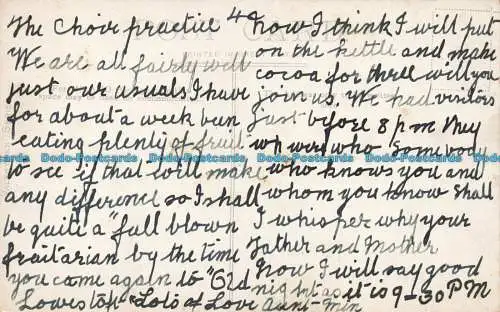 The Choir practice 4d
We are all fairly well
just our usuals I have
for about a week bun
eating plenty of fruit
to see if that will make
any difference so I shall
be quite a "full blown
fruitarian by the time
you come again to "Old
Lowestoft" Lots of Love Aunt Min
now I think I will put
on the kettle and make
cocoa for three will you
join us. We had visitors
just before 8 pm They
who somebody
who knows you and
whom you know Shall
I whisper why your
Father and Mother
now I will say good
night as it is 9-30 PM
Dodo-Postcards Dodo-Postcards Dodo-Postcards Dodo-Postcards Dodo-Postcards